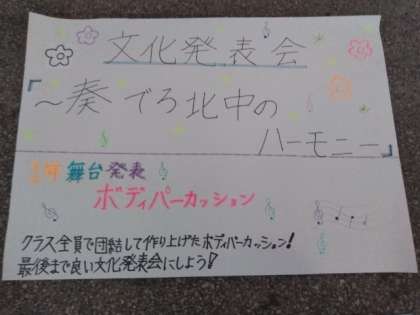 文化発表会
「～奏でろ北中の
ハーモニー」
1年 舞台発表
ボディパーカッション
クラス全員で団結して作り上げたボディパーカッション!
最後まで良い文化発表会にしよう!